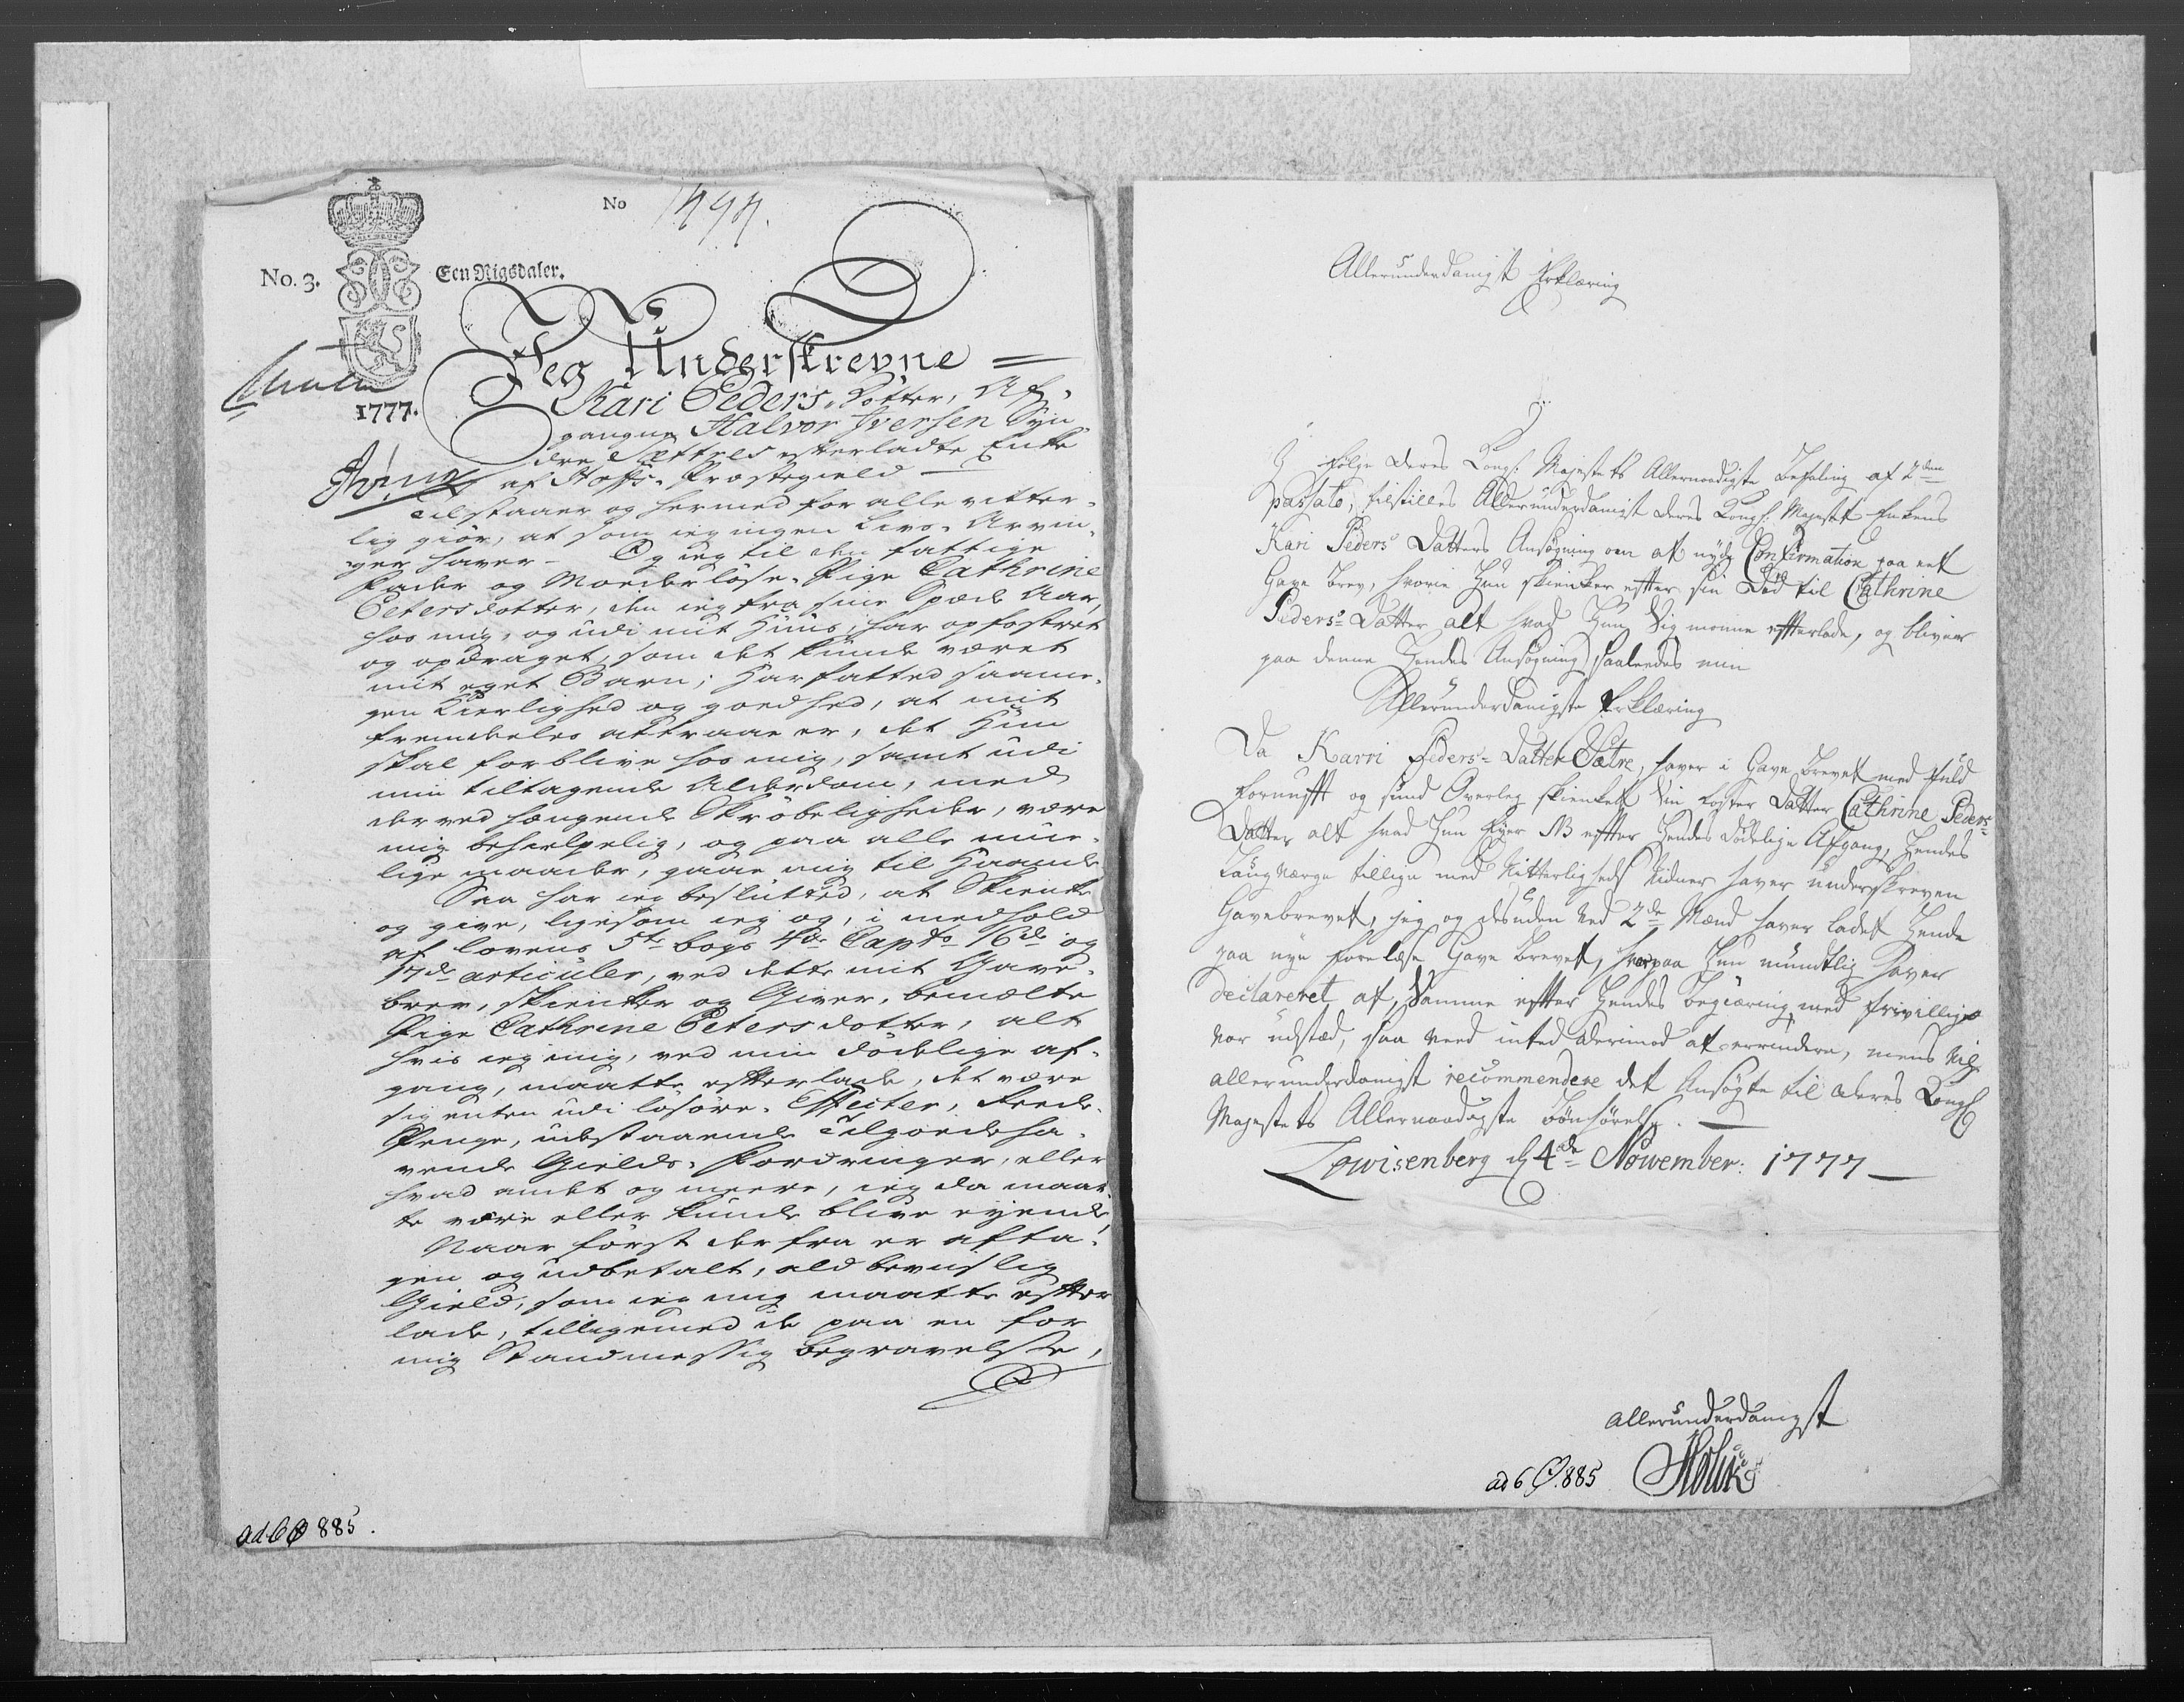 No 1494.
No. 3.
Een Rigsdaler.
1777.
Jeg Underskrevne
Kari Peders-dotter, Af-
gangne Halvor Iversen Syn
dre Sættres efterladte Enke
af Hoffs-Præstegield
tilstaaer og hermed for alle vitter-
lig giør, at som ieg ingen Livs-Arvin-
ger haver - Og ieg til den fattige
Fader og Moederløse Pige Cathrine
Petersdotter, den ieg fra sine spæde Aar,
hos mig, og udi mit Huus, har opfostret
og opdraget, som det kunde været
mit eget Barn; har fatted saame-
gen Kierlighed og goedhed, at mit
fremdeles attraae er, det Hun
skal forblive hos mig, samt udi
min tiltagende Alderdom, med
derved hængende Skrøbeligheder, være
mig behielpelig, og paa alle mue-
lige maader, gaae mig til Haande
Saa har ieg besluttéd, at Skienke
og give, ligesom ieg og, i medhold
af lovens 5te bogs 4de Capts 16de og
17de articuler, ved dette mit Gave-
brev, skienker og Giver, bemælte
Pige Cathrine Petersdotter, alt
hvis ieg mig, ved min dödelige af-
gang, maatte efterlade, det være
sig enten udi lösöre- Effecter, Reede-
Penge, udestaaende Tilgoedeha-
vende Gields-Fordringer, eller
hvad andet og meere, ieg da maat-
te være eller kunde blive eyende,
Naar först der fra er afta-
gen og udbetalt, ald beviislig
Gield, som ieg mig maatte efter
lade, tilligemed de paa en for
mig Standmessig begravelse,
ad 6 885.
Allerunderdanigst Erklæring
I følge Deres Kongl: Majestets Allernaadigste Befaling af 2den
passato, tilstilles Allerunderdanigst Deres Kongl: Majestet Enkens
Kari Peders Datters Ansøgning om at nyde Confirmation paa eet
Gave brev, hvorved Hun skienker efter sin Død til Cathrine
Peders-Datter alt hvad Hun Sig monne efterlade, og bliver
paa denne Hendes Ansøgning saaledes min
Allerunderdanigste Erklæring
Da Karri Peders-Datter Sætre, haver i Gave brevet med fuld
Fornuft og sund Overleg skienket Sin Foster Datter Cathrine Peders-
Datter alt hvad Hun Eyer NB efter Hendes dødelige Afgang, Hendes
Laugværge tillige med Vitterligheds Vidner haver underskreven
Gavebrevet, jeg og desuden ved 2de Mænd haver ladet Hende
paa nye forelæse Gave brevet, hvorpaa Hun mundtlig haver
declareret at, Samme efter Hendes begiæring, med frivillige
var udstæd, saa veed inted derimod at erindre, mens vil
allerunderdanigst recommendere det Ansøgte til Deres Kongl:
Majestets Allernaadigste bønhørelse.
Lowisenberg d 4de Nowember: 1777
Allerunderdanigst
ad 6 885